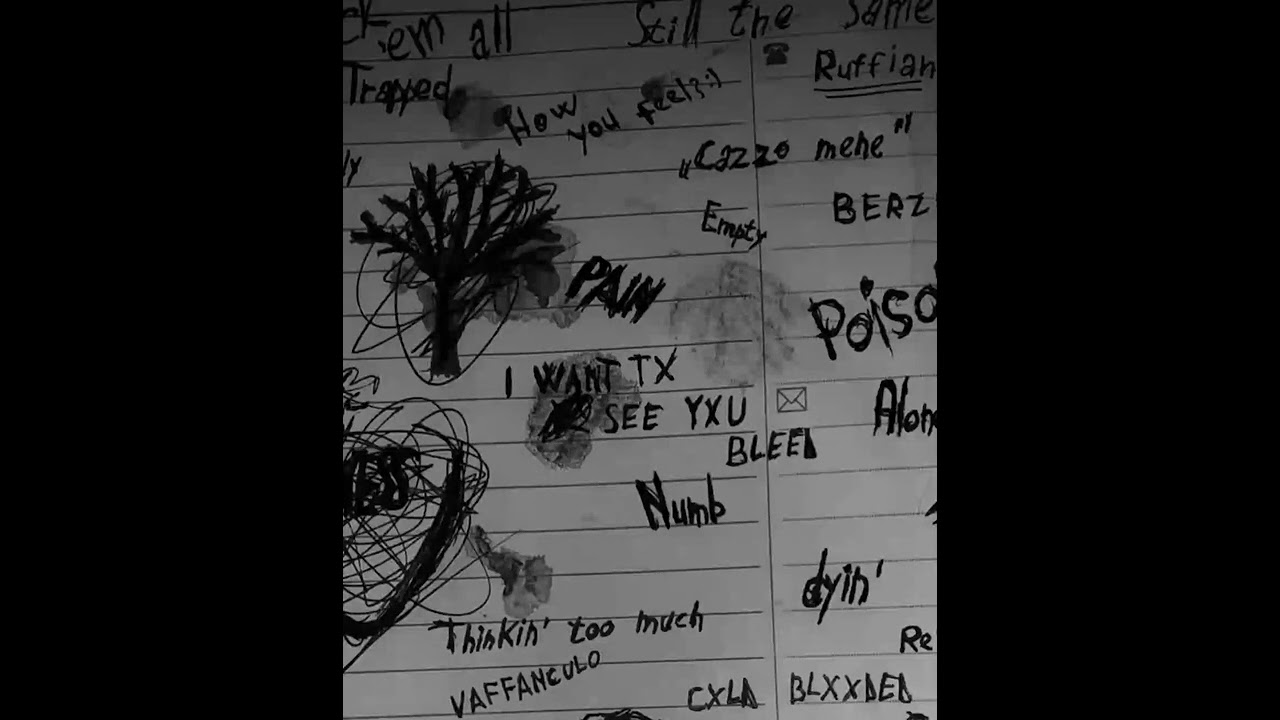 'em all
Still the same
Trapped
Ruffian
How you feel?:)
„Cazzo mene"
Empty
BERZ
PAIN
POiSO
I WANT TX
SEE YXU
BLEED
Alone
Numb
dyin'
Thinkin' too much
Re
VAFFANCULO
CXLD BLXXDED